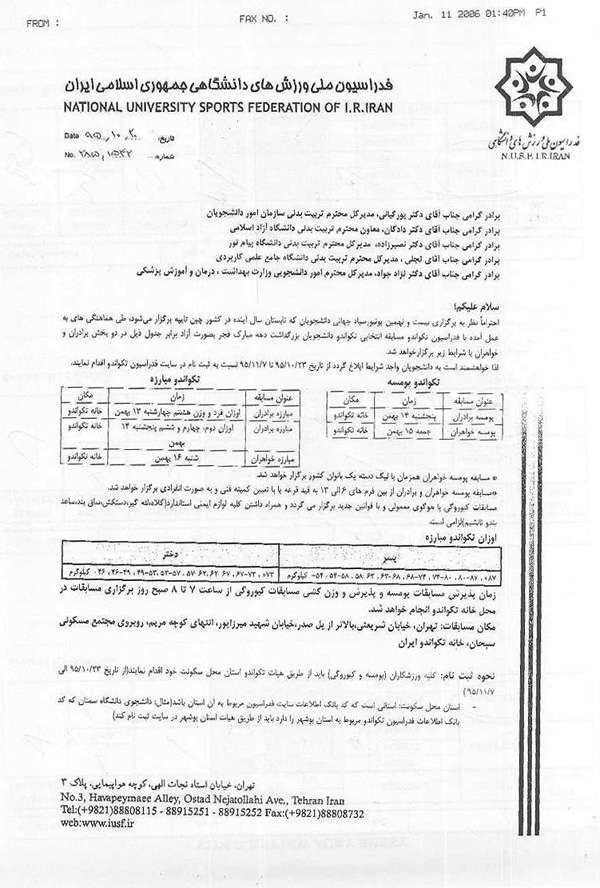 FROM :
FAX NO. :
Jan. 11 2006 01:40PM P1
فدراسیون ملی ورزش های دانشگاهی جمهوری اسلامی ایران
NATIONAL UNIVERSITY SPORTS FEDERATION OF I.R.IRAN
فدراسیون ملی ورزش های دانشگاهی
N.U.S.F. I.R.IRAN
Date ۹۵,۱۰,۲۰ تاریخ:
No. شماره:
برادر گرامی جناب آقای دکتر پورکیانی، مدیرکل محترم تربیت بدنی سازمان امور دانشجویان
برادر گرامی جناب آقای دکتر دادکان، معاون محترم تربیت بدنی دانشگاه آزاد اسلامی
برادر گرامی جناب آقای دکتر نصیرزاده، مدیرکل محترم تربیت بدنی دانشگاه پیام نور
برادر گرامی جناب آقای تجلی، مدیرکل محترم تربیت بدنی دانشگاه جامع علمی کاربردی
برادر گرامی جناب آقای دکتر نژاد جواد، مدیرکل محترم امور دانشجویی وزارت بهداشت، درمان و آموزش پزشکی
سلام علیکم؛
احتراماً نظر به برگزاری بیست و نهمین یونیورسیاد جهانی دانشجویان که تابستان سال آینده در کشور چین تایپه برگزار می‌شود، طی هماهنگی های به
عمل آمده با فدراسیون تکواندو مسابقه انتخابی تکواندو دانشجویان بزرگداشت دهه مبارک فجر بصورت آزاد برابر جدول ذیل در دو بخش برادران و
خواهران با شرایط زیر برگزار خواهد شد.
لذا خواهشمند است به دانشجویان واجد شرایط ابلاغ گردد از تاریخ ۹۵/۱۰/۲۳ تا ۹۵/۱۱/۷ نسبت به ثبت نام در سایت فدراسیون تکواندو اقدام نمایند.
تکواندو پومسه
عنوان مسابقه زمان مکان
پومسه برادران پنجشنبه ۱۴ بهمن خانه تکواندو
پومسه خواهران جمعه ۱۵ بهمن خانه تکواندو
تکواندو مبارزه
عنوان مسابقه زمان مکان
مبارزه برادران اوزان فرد و وزن هشتم چهارشنبه ۱۳ بهمن خانه تکواندو
مبارزه برادران اوزان دوم، چهارم و ششم پنجشنبه ۱۴ خانه تکواندو
بهمن
مبارزه خواهران شنبه ۱۶ بهمن خانه تکواندو
* مسابقه پومسه خواهران همزمان با لیگ دسته یک بانوان کشور برگزار خواهد شد.
*مسابقه پومسه خواهران و برادران از بین فرم های ۶ الی ۱۳ به قید قرعه یا با تعیین کمیته فنی و به صورت انفرادی برگزار خواهد شد.
مسابقات کیوروگی با هوگوی معمولی و با قوانین جدید برگزار می گردد و همراه داشتن کلیه لوازم ایمنی استاندارد(کلاه،لثه گیر،دستکش،ساق بند،ساعد
بند)الزامی است.
اوزان تکواندو مبارزه
پسر دختر
۵۴-، ۵۸-۵۴، ۶۳-۵۸، ۶۸-۶۳، ۷۴-۶۸، ۸۰-۷۴، ۸۷-۸۰، ۸۷+ کیلوگرم
۴۶-، ۴۹-۴۶، ۵۳-۴۹، ۵۷-۵۳، ۶۲-۵۷، ۶۷-۶۲، ۷۳-۶۷، ۷۳+ کیلوگرم
زمان پذیرش مسابقات پومسه و پذیرش و وزن کشی مسابقات کیوروگی از ساعت ۷ تا ۸ صبح روز برگزاری مسابقات در
محل خانه تکواندو انجام خواهد شد.
مکان مسابقات: تهران، خیابان شریعتی،بالاتر از پل صدر،خیابان شهید میرزاپور، انتهای کوچه مریم، روبروی مجتمع مسکونی
سبحان، خانه تکواندو ایران
نحوه ثبت نام: کلیه ورزشکاران (پومسه و کیوروگی) باید از طریق هیات تکواندو استان محل سکونت خود اقدام نمایند(از تاریخ ۹۵/۱۰/۲۳ الی
۹۵/۱۱/۷)
- استان محل سکونت: استانی است که کد بانک اطلاعات سایت فدراسیون مربوط به آن استان باشد(مثال: دانشجوی دانشگاه سمنان که کد
بانک اطلاعات فدراسیون تکواندو مربوط به استان بوشهر را دارد باید از طریق هیات استان بوشهر در سایت ثبت نام کند)
تهران، خیابان استاد نجات الهی، کوچه هواپیمایی، پلاک ۳
No.3, Havapeymaee Alley, Ostad Nejatollahi Ave., Tehran Iran
Tel:(+9821)88808115 - 88915251 - 88915252 Fax:(+9821)88808732
web:www.iusf.ir